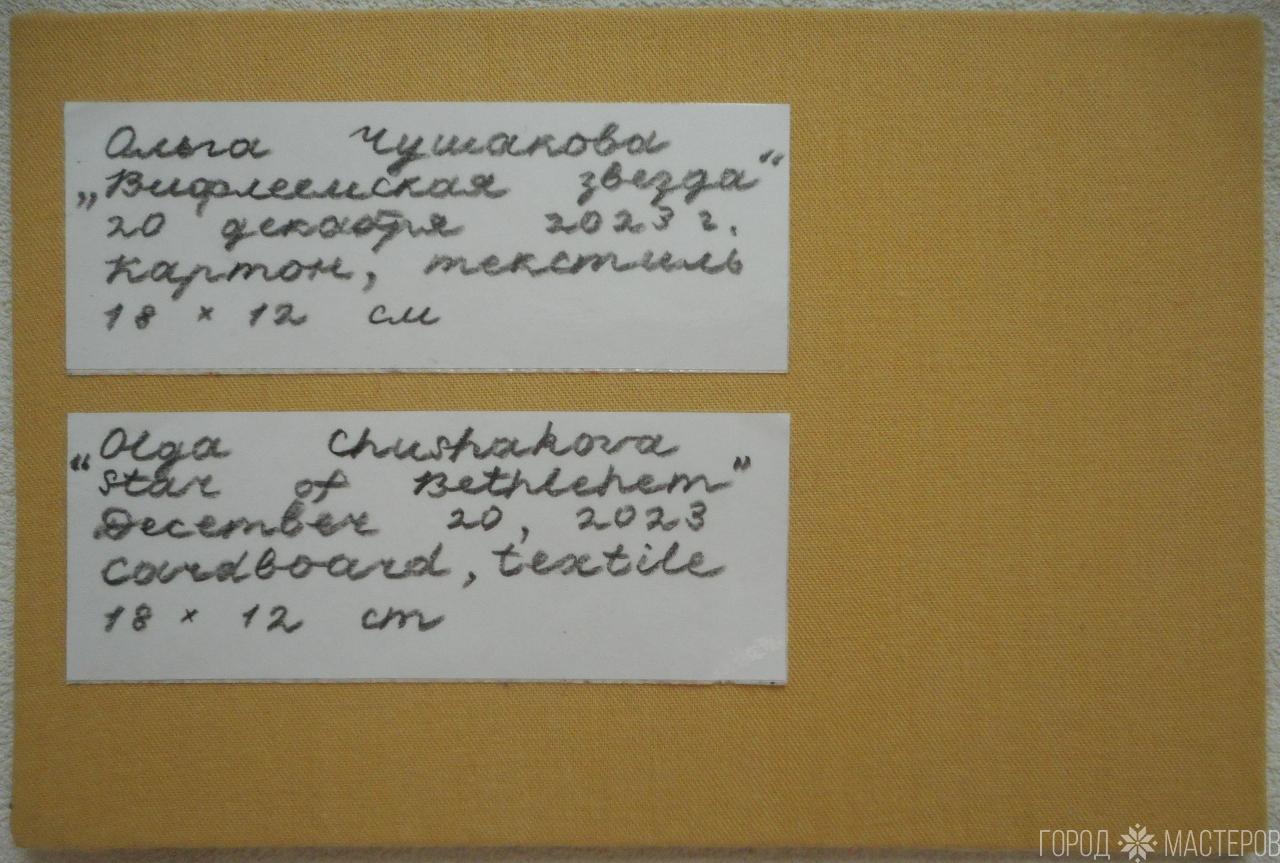 Ольга Чушакова
„Вифлеемская звезда“
20 декабря 2023 г.
картон, текстиль
18 × 12 см
Olga Chushakova
“Star of Bethlehem”
December 20, 2023
cardboard, textile
18 × 12 cm
ГОРОД МАСТЕРОВ